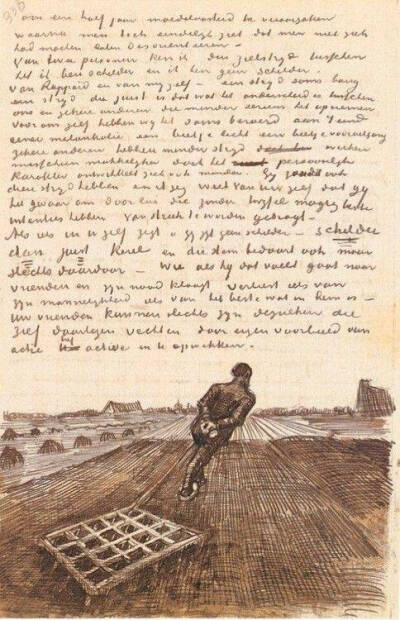 om een half jaar moedeloosheid te veroorzaken
waarna men toch eindelijk ziet dat men niet zich
had moeten laten desorienteeren –
Van twee personen ken ik den zielstrijd tusschen
het ik ben schilder en ik ben geen schilder.
Van Rappard en van mijzelf – een strijd soms bang
een strijd die juist is dat wat het onderscheid is tusschen
ons en zekere anderen die minder serieus het opnemen
voor ons zelf hebben wij 't soms beroerd aan 't eind
eener melankolie, een beetje licht een beetje vooruitgang
zekere anderen hebben minder strijd werken
misschien makkelijker doch het persoonlijk
karakter ontwikkelt zich ook minder. Gij zoudt ook
dien strijd hebben en ik zeg weet van Uw zelf dat gij
het gevaar om door lui die zonder twijfel beste
intenties hebben van streek te worden gebragt –
Als iets in U zelf zegt gij zijt geen schilder – schilder
dan juist kerel en die stem bedaart ook maar
slechts daardoor – Wie als hij dat voelt gaat naar
vrienden en zijn nood klaagt verliest iets van
zijn mannelijkheid iets van het beste wat in hem is –
Uw vrienden kunnen slechts zijn degenen die
zelf daartegen vechten door eigen voorbeeld van
actie het actieve in U opwekken.